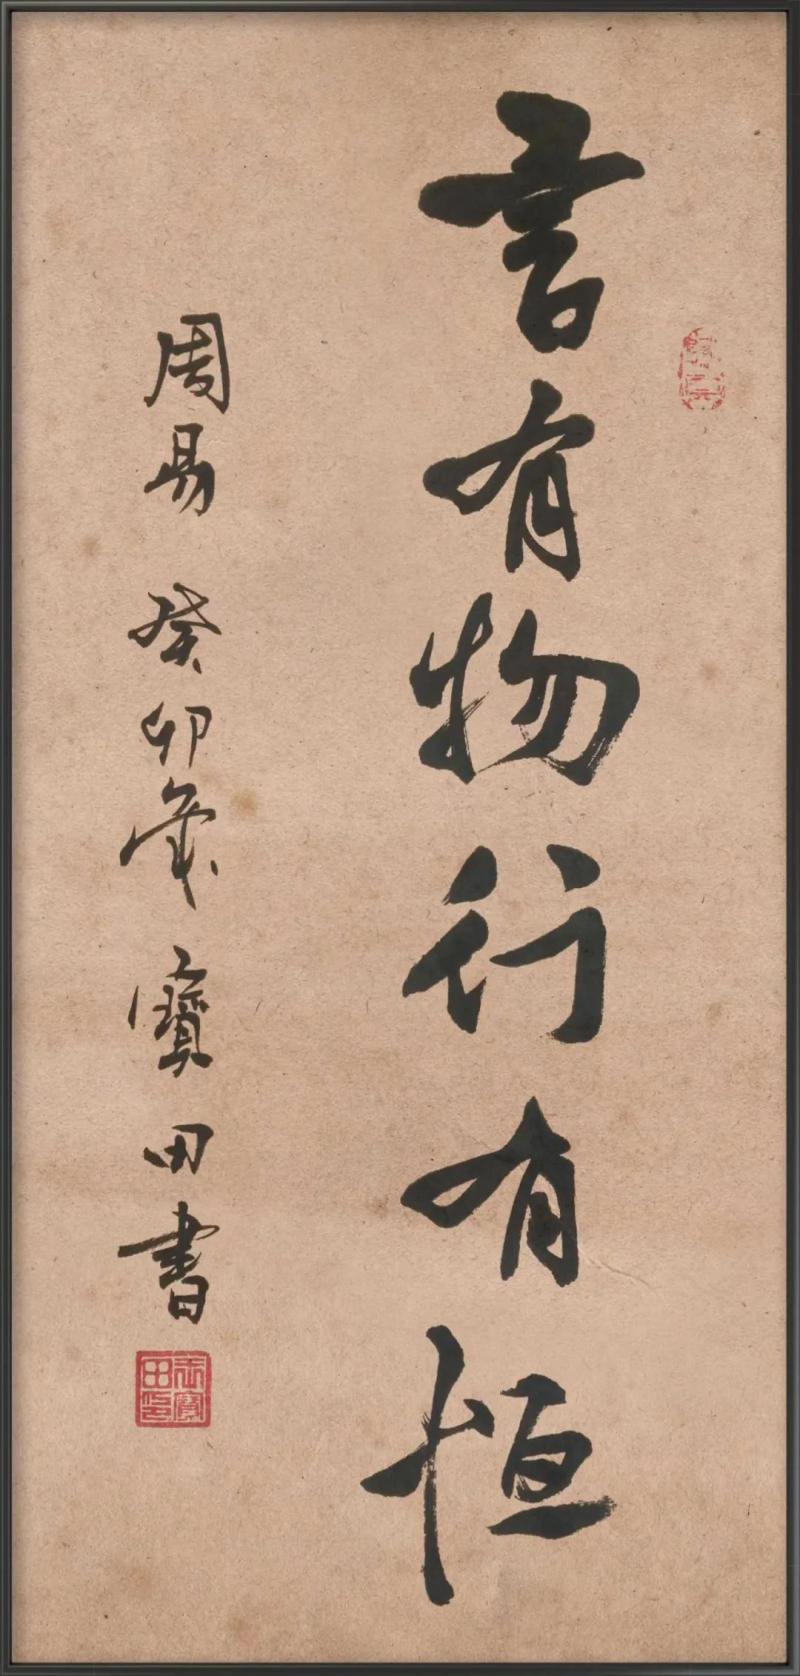 言有物行有恒
周易 癸卯歲 寶田書
寶田印